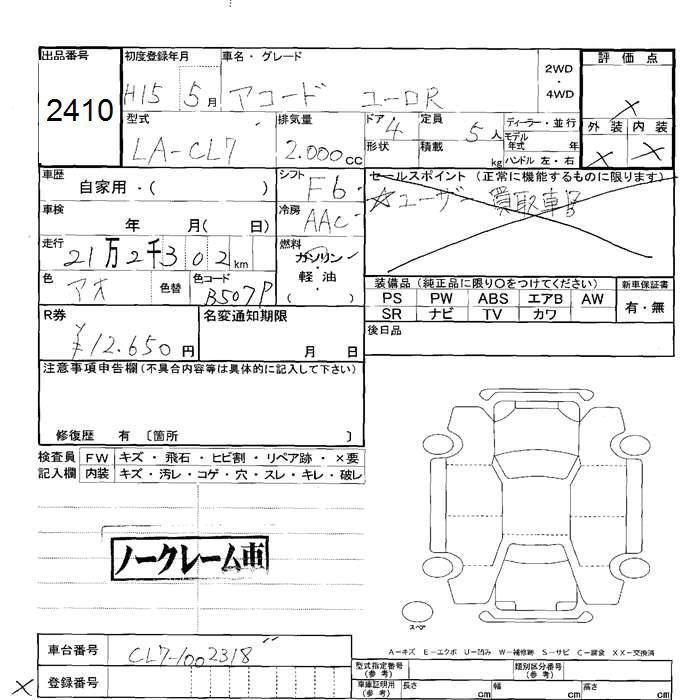 出品番号 初度登録年月 車名・グレード 2WD・4WD 評価点
2410 H15 5月 アコード ユーロR ×
型式 排気量 ドア 4 定員 5人 ディーラー・並行 外装 内装
LA-CL7 2.000cc 形状 積載 kg モデル年式 年 × ×
ハンドル 左・右
車歴 自家用・( ) シフト F6 セールスポイント (正常に機能するものに限ります)
☆ユーザー買取車
車検 年 月( 日) 冷房 AAC
走行 21万2千302km 燃料 ガソリン・軽油 ( )
色 アオ 色替 色コード B507P
装備品 (純正品に限り○をつけてください) 新車保証書
PS PW ABS エアB AW 有・無
SR ナビ TV カワ
R券 ¥12.650円 名変通知期限 月 日
後日品
注意事項申告欄(不具合内容等は具体的に記入して下さい)
修復歴 有 〔箇所 〕
検査員 FW キズ・飛石・ヒビ割・リペア跡・×要
記入欄 内装 キズ・汚レ・コゲ・穴・スレ・キレ・破レ
ノークレーム車
スペア
A-キズ E-エクボ U-凹み W-補修跡 S-サビ C-腐食 XX-交換済
車台番号 CL7-1002318
型式指定番号(参考) 類別区分番号(参考)
× 登録番号
車庫証明用(参考) 長さ cm 幅 cm 高さ cm